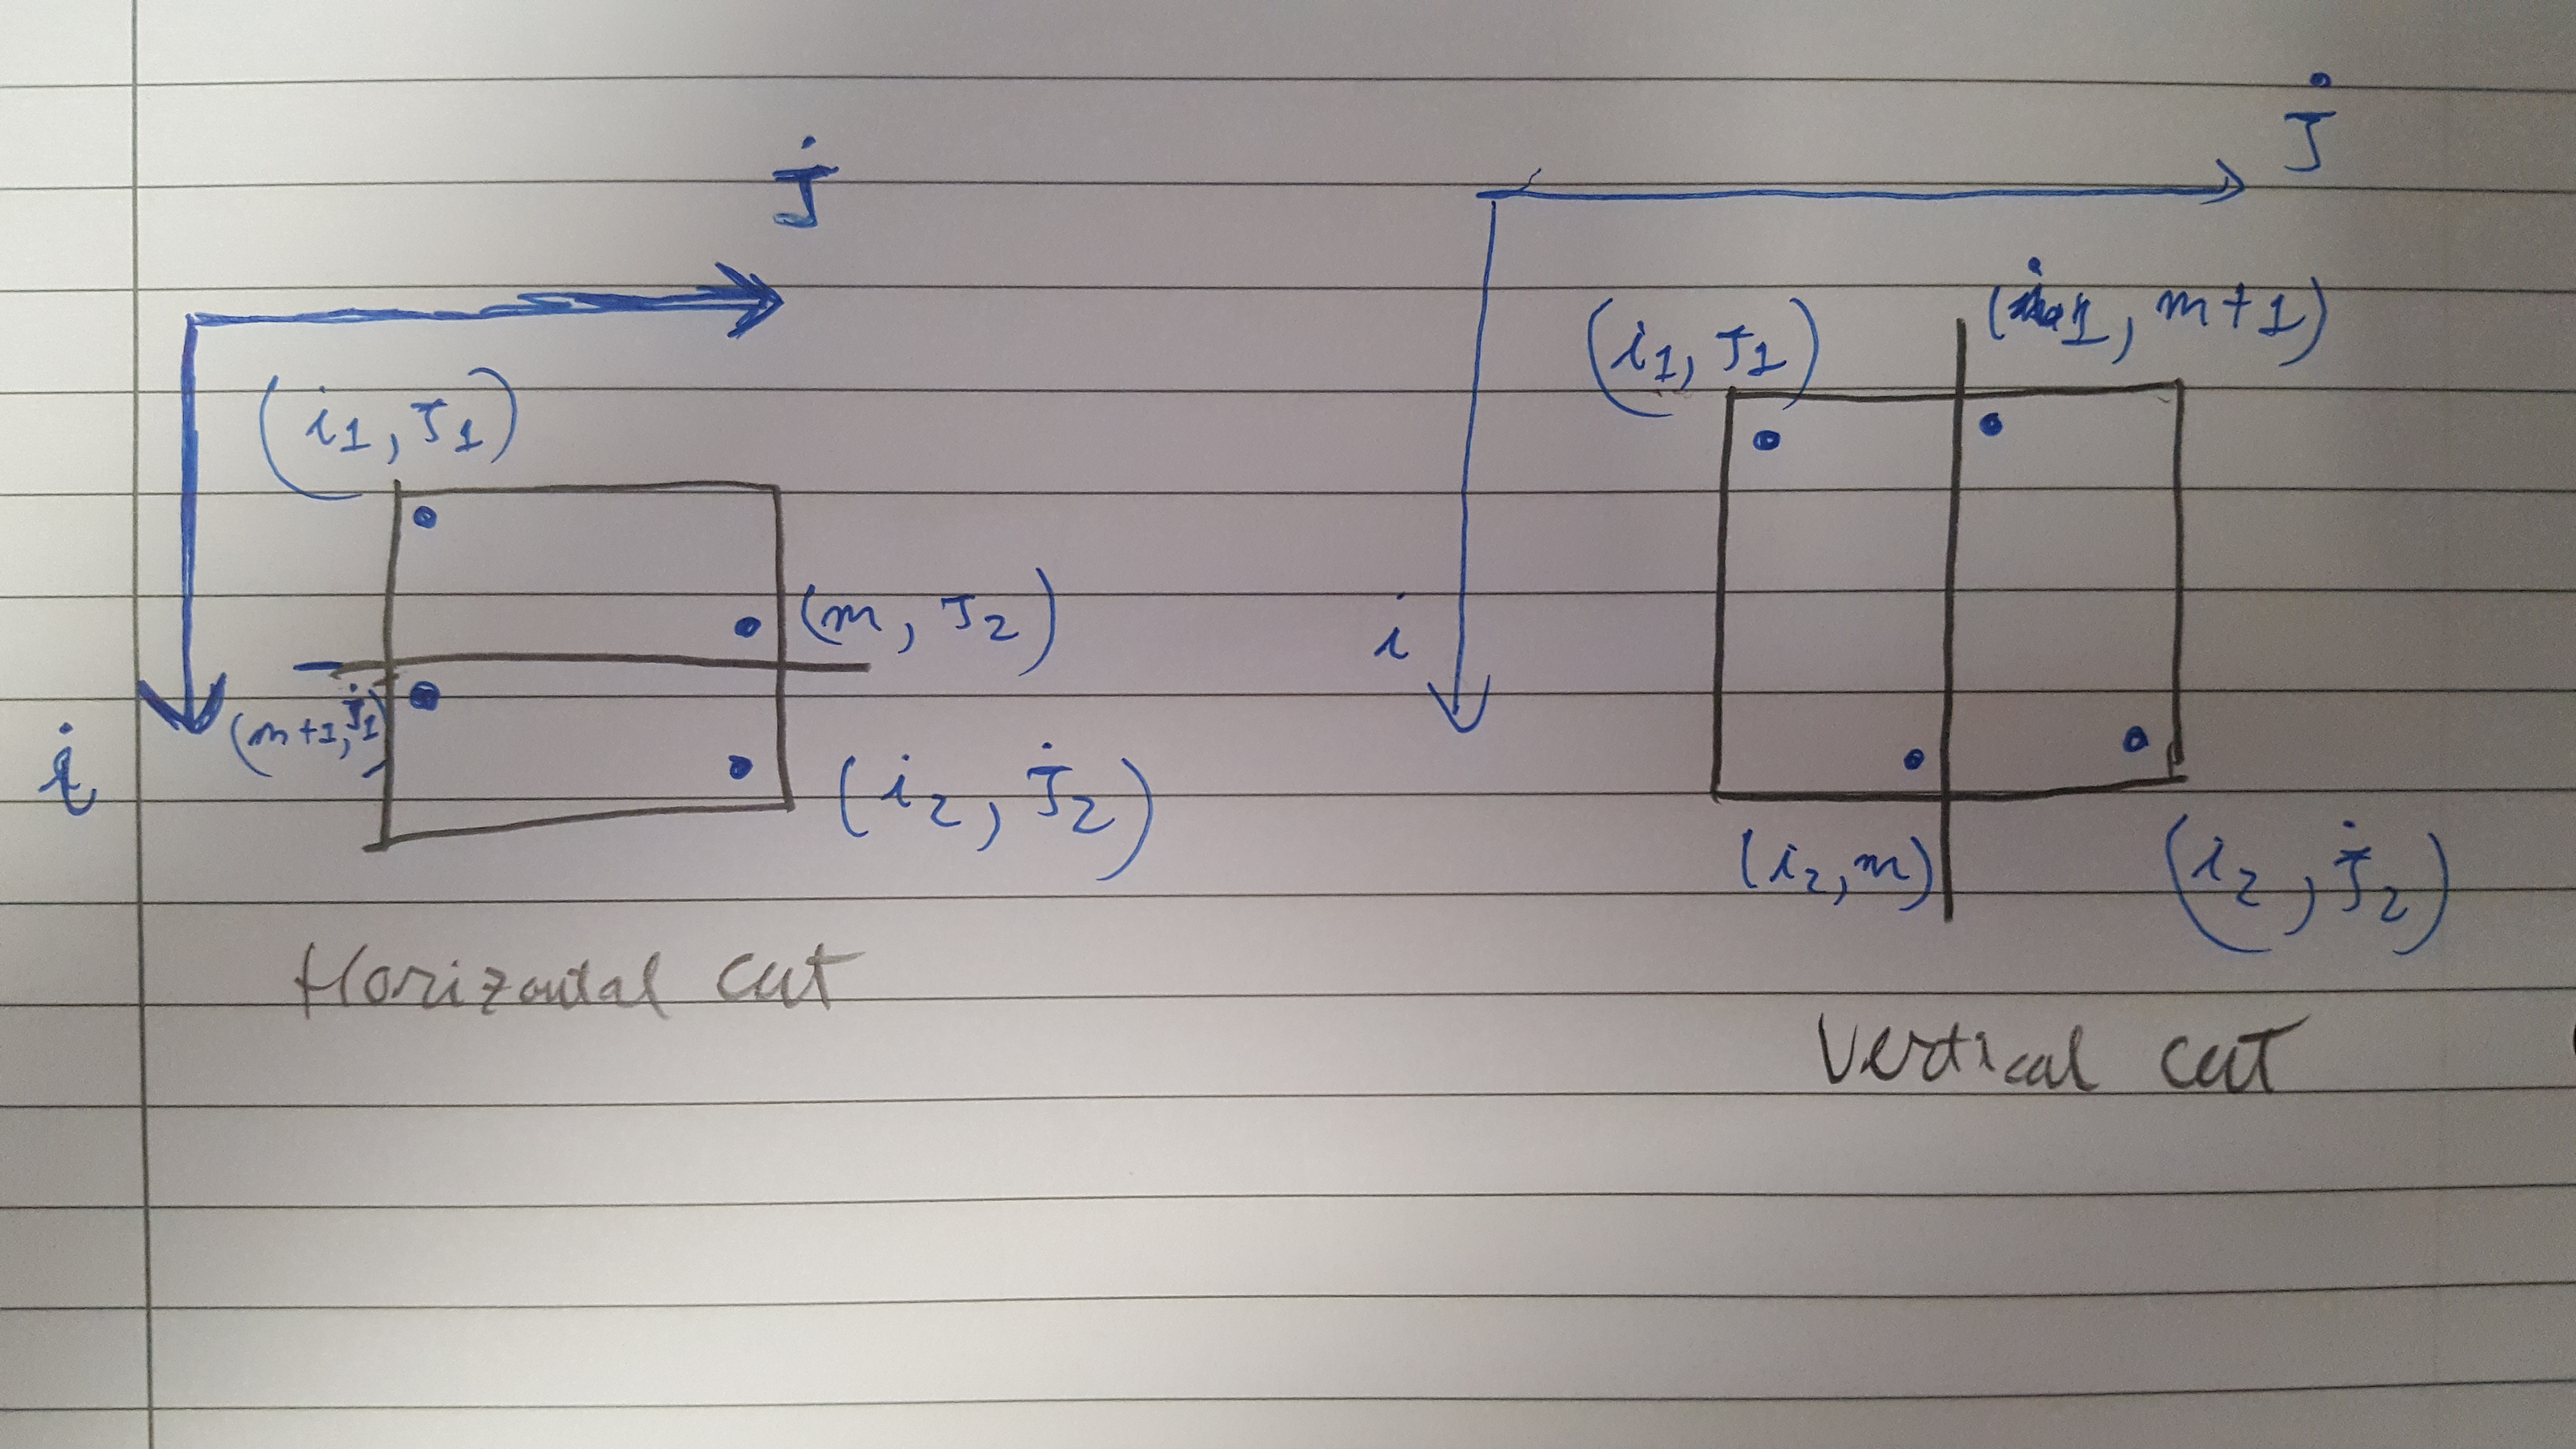 j
(i1, j1)
(m, j2)
(m+1, j1)
i
(i2, j2)
Horizontal cut
j
(i1, j1)
, m+1)
i
(i2, m)
(i2, j2)
Vertical cut